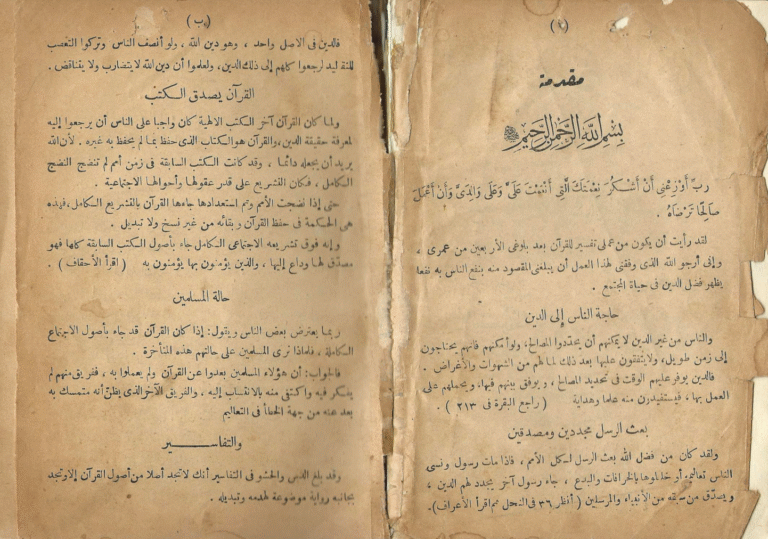 (أ)
مقدمة
بسم الله الرحمن الرحيم
رب أوزعنى أن أشكر نعمتك التى أنعمت على وعلى والدى وأن أعمل
صالحا ترضاه .
لقد رأيت أن يكون من عملى تفسير للقرآن بعد بلوغى الأربعين من عمرى ،
وإنى أرجو الله الذى وفقنى لهذا العمل أن يبلغنى المقصود منه بنفع الناس به نفعا
يظهر فضل الدين فى حياة المجتمع .
حاجة الناس إلى الدين
والناس من غير الدين لا يمكنهم أن يحددوا المصالح، ولو أمكنهم فانهم يحتاجون
إلى زمن طويل، ولا يتفقون عليها بعد ذلك لما لهم من الشهوات والأغراض .
فالدين يوفر عليهم الوقت فى تحديد المصالح ، ويوفق بينهم فيها، ويحملهم على
العمل بها ، فيستفيدون منه علما وهداية ( راجع البقرة فى ٢١٣ ) .
بعث الرسل مجددين ومصدقين
ولقد كان من فضل الله بعث الرسل لكل الأمم ، فاذا مات رسول ونسى
الناس تعاليمه أو خلطوها بالخرافات والبدع ، جاء رسول آخر يجدد لهم الدين ،
ويصدق من سبقه من الأنبياء والمرسلين ( أنظر ٣٦ فى النحل ثم اقرأ الأعراف).
(ب)
فالدين فى الاصل واحد ، وهو دين الله ، ولو أنصف الناس وتركوا التعصب
للتقاليد لرجعوا كلهم إلى ذلك الدين، ولعلموا أن دين الله لا يتضارب ولا يتناقض .
القرآن يصدق الكتب
ولما كان القرآن آخر الكتب الالهية كان واجبا على الناس أن يرجعوا إليه
لمعرفة حقيقة الدين، والقرآن هو الكتاب الذى حفظ بما لم يحفظ به غيره . لأن الله
يريد أن يجعله دائما ، وقد كانت الكتب السابقة فى زمن أمم لم تنضج النضج
الكامل ، فكان التشريع على قدر عقولها وأحوالها الاجتماعية .
حتى إذا نضجت الأمم وتم استعدادها جاءها القرآن بالتشريع الكامل، فهذه
هى الحكمة فى حفظ القرآن وبقائه من غير نسخ ولا تبديل .
وإنه فوق تشريعه الاجتماعى الكامل جاء بأصول الكتب السابقة كلها فهو
مصدق لها وداع إليها ، والذين يؤمنون بها يؤمنون به ( اقرأ الأحقاف ) .
حالة المسلمين
ربما يعترض بعض الناس ويقول: إذا كان القرآن قد جاء بأصول الاجتماع
الكاملة ، فلماذا نرى المسلمين على حالتهم هذه المتأخرة .
فالجواب: أن هؤلاء المسلمين بعدوا عن القرآن ولم يعملوا به ، ففريق منهم لم
يفكر فيه واكتفى منه بالانتساب إليه . والفريق الآخر الذى يظن أنه متمسك به
بعد عنه من جهة الخطأ فى التعاليم
والتفاسير
وقد بلغ الدس والحشو فى التفاسير أنك لا تجد أصلا من أصول القرآن إلا وتجد
بجانبه رواية موضوعة لهدمه وتبديله .